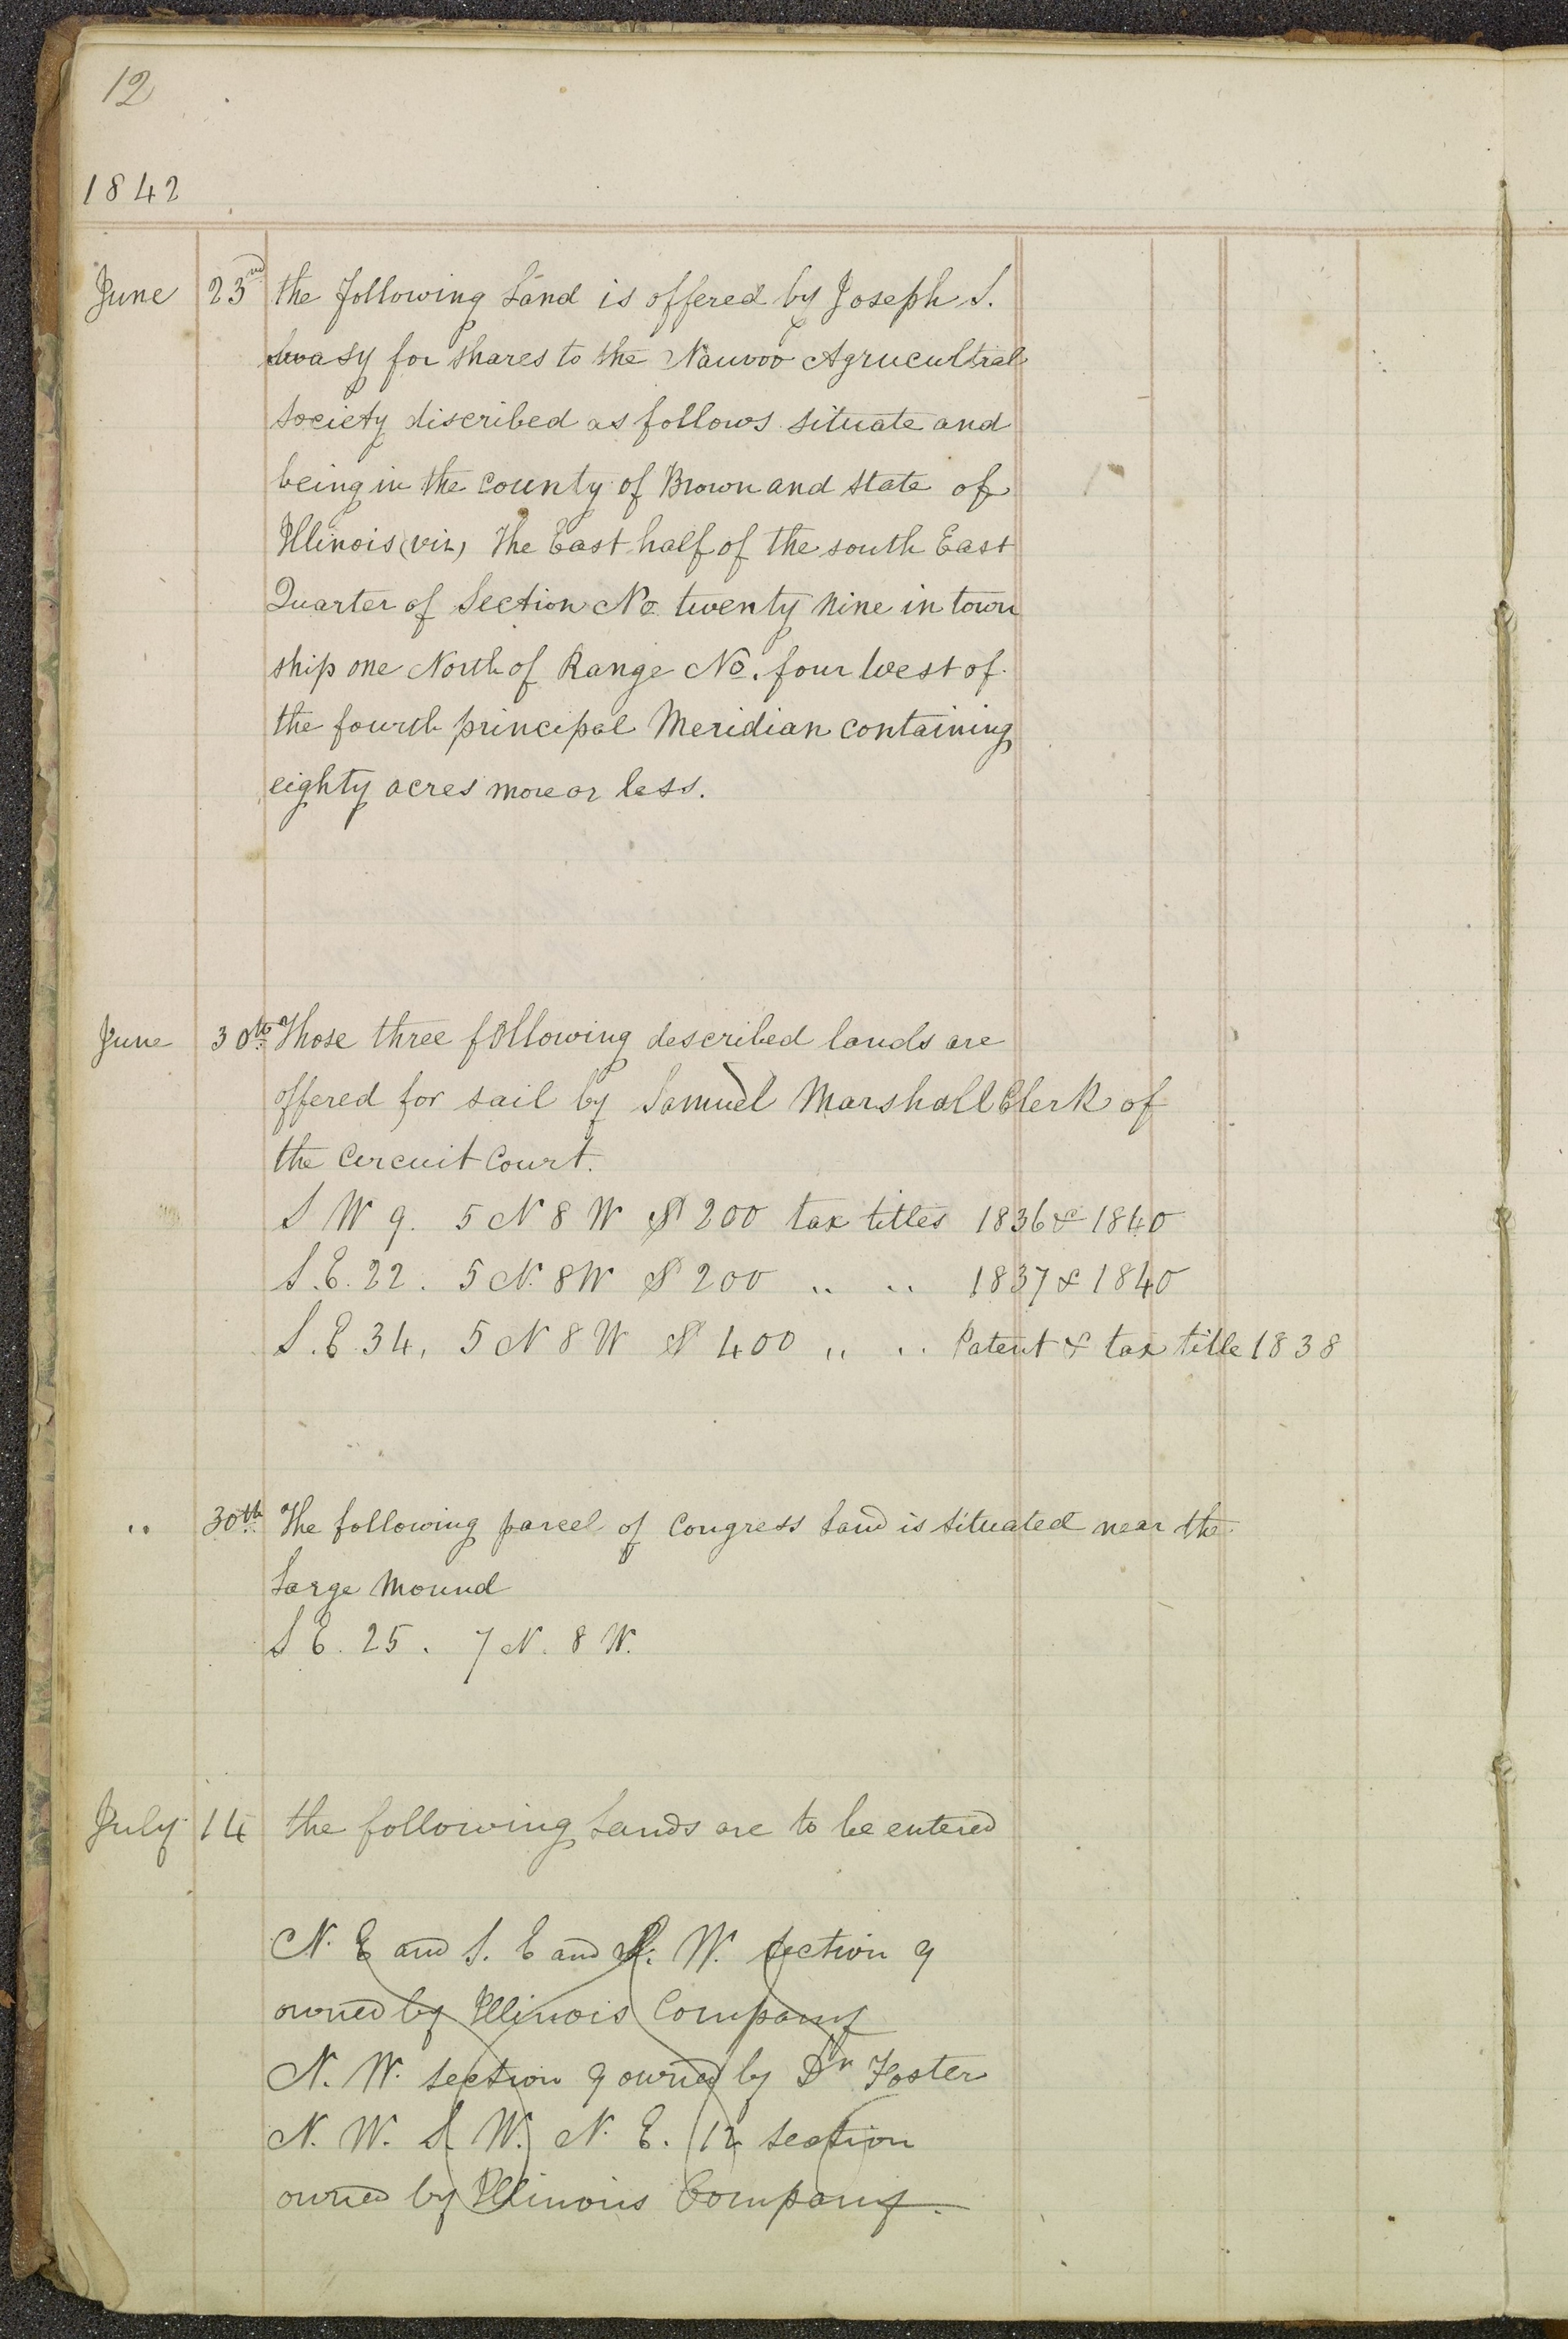 12
1842
June 23nd the following Land is offered by Joseph S.
for shares to the Nauvoo Agrucultral
Society discribed as follows situate and
being in the county of Brown and state of
Illinois (viz) The East half of the south East
Quarter of Section No twenty nine in town
ship one North of Range No. four West of
the fourth principal Meridian containing
eighty acres more or less.
June 30th Those three following described lands are
offered for sail by Samuel Marshall Clerk of
the Circuit Court.
S W 9. 5 N 8 W $ 200 tax titles 1836 & 1840
S. E. 22. 5 N. 8 W $ 200 " " 1837 & 1840
S. E. 34, 5 N 8 W $ 400 " " Patent & tax title 1838
" 30th The following parcel of Congress Land is situated near the
Large Mound
S E. 25. 7 N. 8 W.
July 14 the following Lands are to be entered
N. E and S. E and S. W. Section 9
owned by Illinois Company
N. W. section 9 owned by Dr Foster
N. W. S. W. N. E. 12 section
owned by Illinois Company.